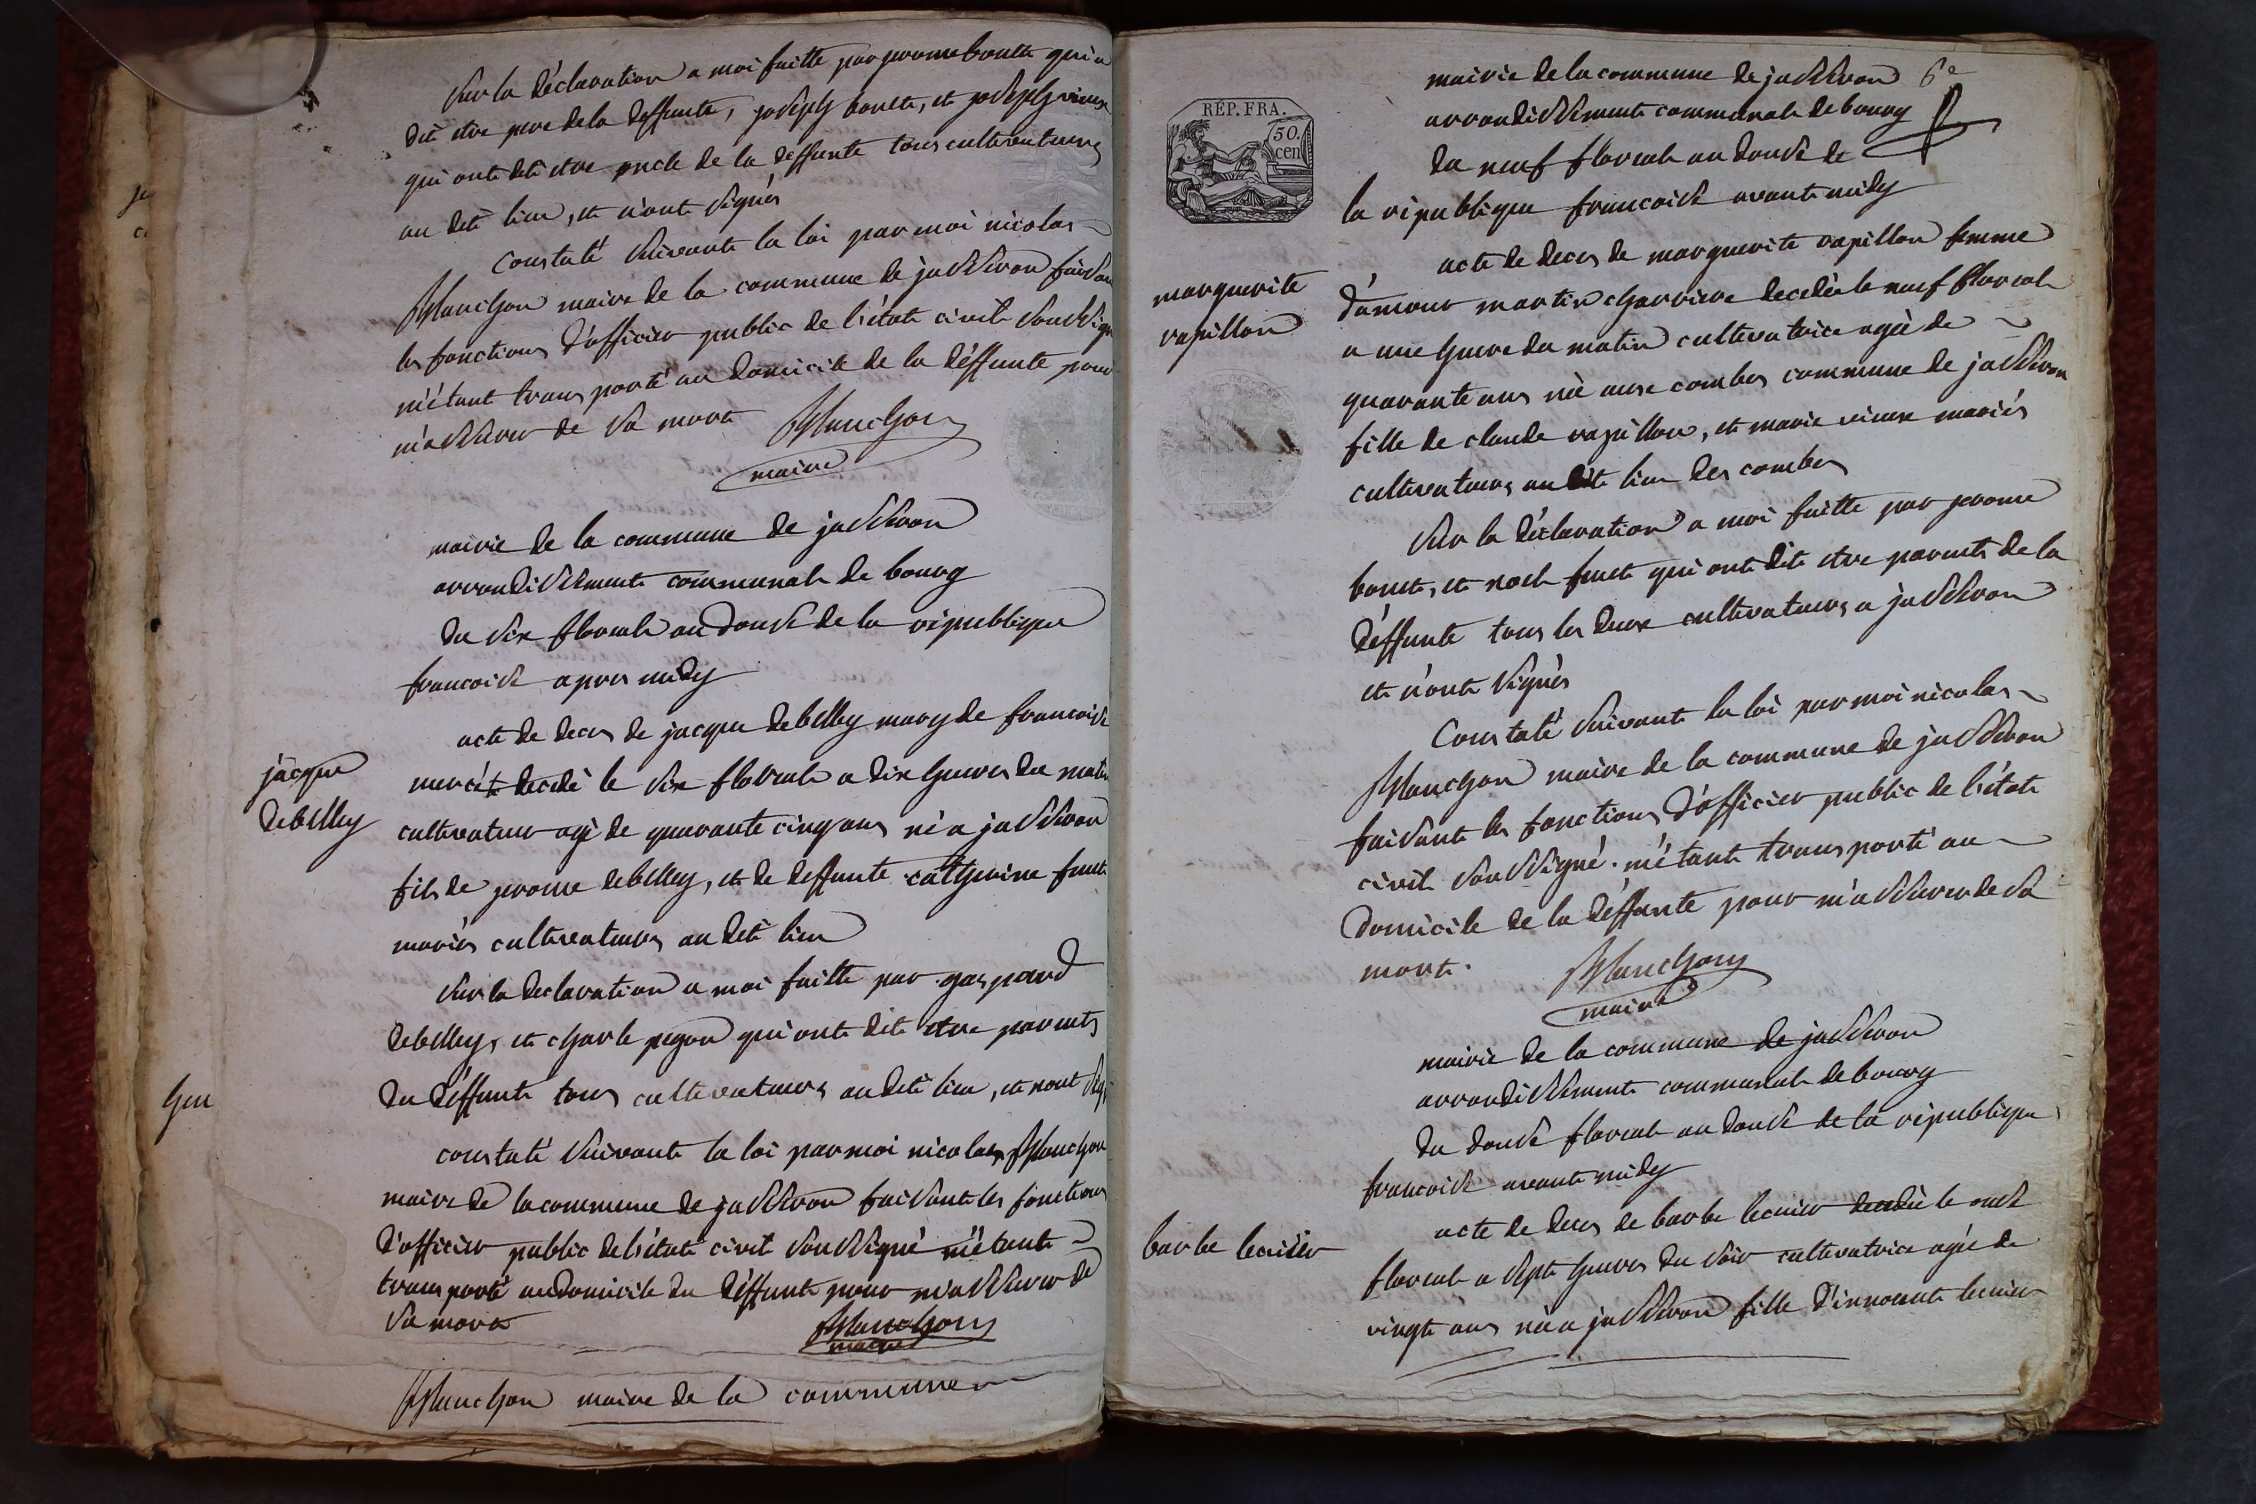 Sur la déclaration a moi faitte par jerome bouct qui a
dit etre pere de la deffunte, joseph bouct, et joseph vieux
qui ont dit etre oncle de la deffunte tous cultivateurs
au dit lieu, et n'ont signés
Constaté suivante la loi par moi nicolas
Planchon maire de la commune de jasseron faisan
les fonctions d'officier public de l'état civil soussigné
m'étant transporté au domicile de la déffunte pour
m'assurer de sa mort
Planchon
maire
mairie de la commune de jasseron
arrondissement communal de bourg
du six floreal an douse de la république
francoise apres midy
jacque
debelley
acte de deces de jacque debelley mary de francoise
decedé le six floreal a dix heures du matin
cultivateur agé de quarante cinq ans né a jasseron
fils de jerome debelley, et de deffunte catherine
mariés cultivateurs au dit lieu
Sur la declaration a moi faitte par gaspard
debelley, et charle pegon qui ont dit etre parents
du déffunt tous cultivateurs au dit lieu, et n'ont
constaté suivante la loi par moi nicolas Planchon
maire de la commune de jasseron faisante les fonctions
d'officier public de l'état civil soussigné m'étant
transporté au domicile du déffunt pour m'assurer de
sa mort
Planchon
maire
Planchon maire de la commune
heu
RÉP. FRA.
50.
cen
mairie de la commune de jasseron 6e
arrondissement communal de bourg
du neuf floreal an douse de
la république francoise avant midy
marguerite
rapillon
acte de deces de marguerite rapillon femme
d'amour martin charriere decedée le neuf floreal
a une heure du matin cultivatrice agée de
quarante ans née aux combes commune de jasseron
fille de claude rapillon, et marie vieux mariés
cultivateurs au dit lieu des combes
Sur la déclaration a moi faitte par jerome
bouct, et qui ont dit etre parents de la
déffunte tous les deux cultivateurs a jasseron
et n'ont signés
Constaté suivante la loi par moi nicolas
Planchon maire de la commune de jasseron
faisante les fonctions d'officier public de l'état
civil soussigné. m'étant transporté au
domicile de la déffunte pour m'assurer de sa
mort.
Planchon
maire
mairie de la commune de jasseron
arrondissement communal de bourg
du douse floreal an douse de la république
francoise avant midy
barbe lecuier
acte de deces de barbe lecuier decedée le onse
floreal a sept heures du soir cultivatrice agée de
vingt ans née a jasseron fille d'innocent lecuier